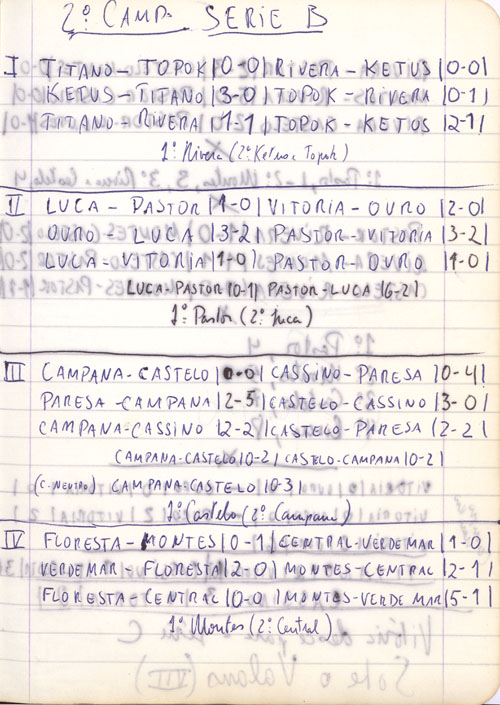 2º CAMP. SERIE B
I TITANO - TOPOK |0-0| RIVERA - KETUS |0-0|
KETUS - TITANO |3-0| TOPOK - RIVERA |0-1|
TITANO - RIVERA |1-1| TOPOK - KETUS |2-1|
1º Rivera (2º Ketus e Topok)
II LUCA - PASTOR |1-0| VITORIA - OURO |2-0|
OURO - LUCA |3-2| PASTOR - VITORIA |3-2|
LUCA - VITORIA |1-0| PASTOR - OURO |1-0|
LUCA - PASTOR |0-1| PASTOR - LUCA |6-2|
1º Pastor (2º Luca)
III CAMPANA - CASTELO |0-0| CASSINO - PARESA |0-4|
PARESA - CAMPANA |2-5| CASTELO - CASSINO |3-0|
CAMPANA - CASSINO |2-2| CASTELO - PARESA |2-2|
CAMPANA - CASTELO |0-2| CASTELO - CAMPANA |0-2|
(C. NEUTRO) CAMPANA - CASTELO |0-3|
1º Castelo (2º Campana)
IV FLORESTA - MONTES |0-1| CENTRAL - VERDE MAR |1-0|
VERDE MAR - FLORESTA |2-0| MONTES - CENTRAL |2-1|
FLORESTA - CENTRAL |0-0| MONTES - VERDE MAR |5-1|
1º Montes (2º Central)